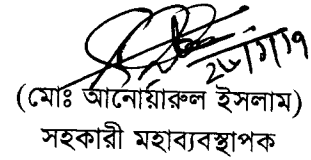 ২৮/১/১৭
(মোঃ আনোয়ারুল ইসলাম)
সহকারী মহাব্যবস্থাপক